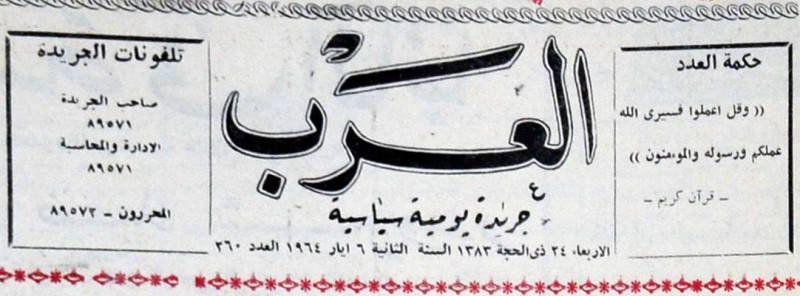 حكمة العدد
(( وقل اعملوا فسيرى الله
عملكم ورسوله والمؤمنون ))
ـ قرآن كريم ـ
العرب
جريدة يومية سياسية
الاربعاء ٢٤ ذى الحجة ١٣٨٣ السنة الثانية ٦ ايار ١٩٦٤ العدد ٢٦٠
تلفونات الجريدة
صاحب الجريدة
٨٩٥٧١
الادارة والمحاسبة
٨٩٥٧١
المحررون - ٨٩٥٧٢